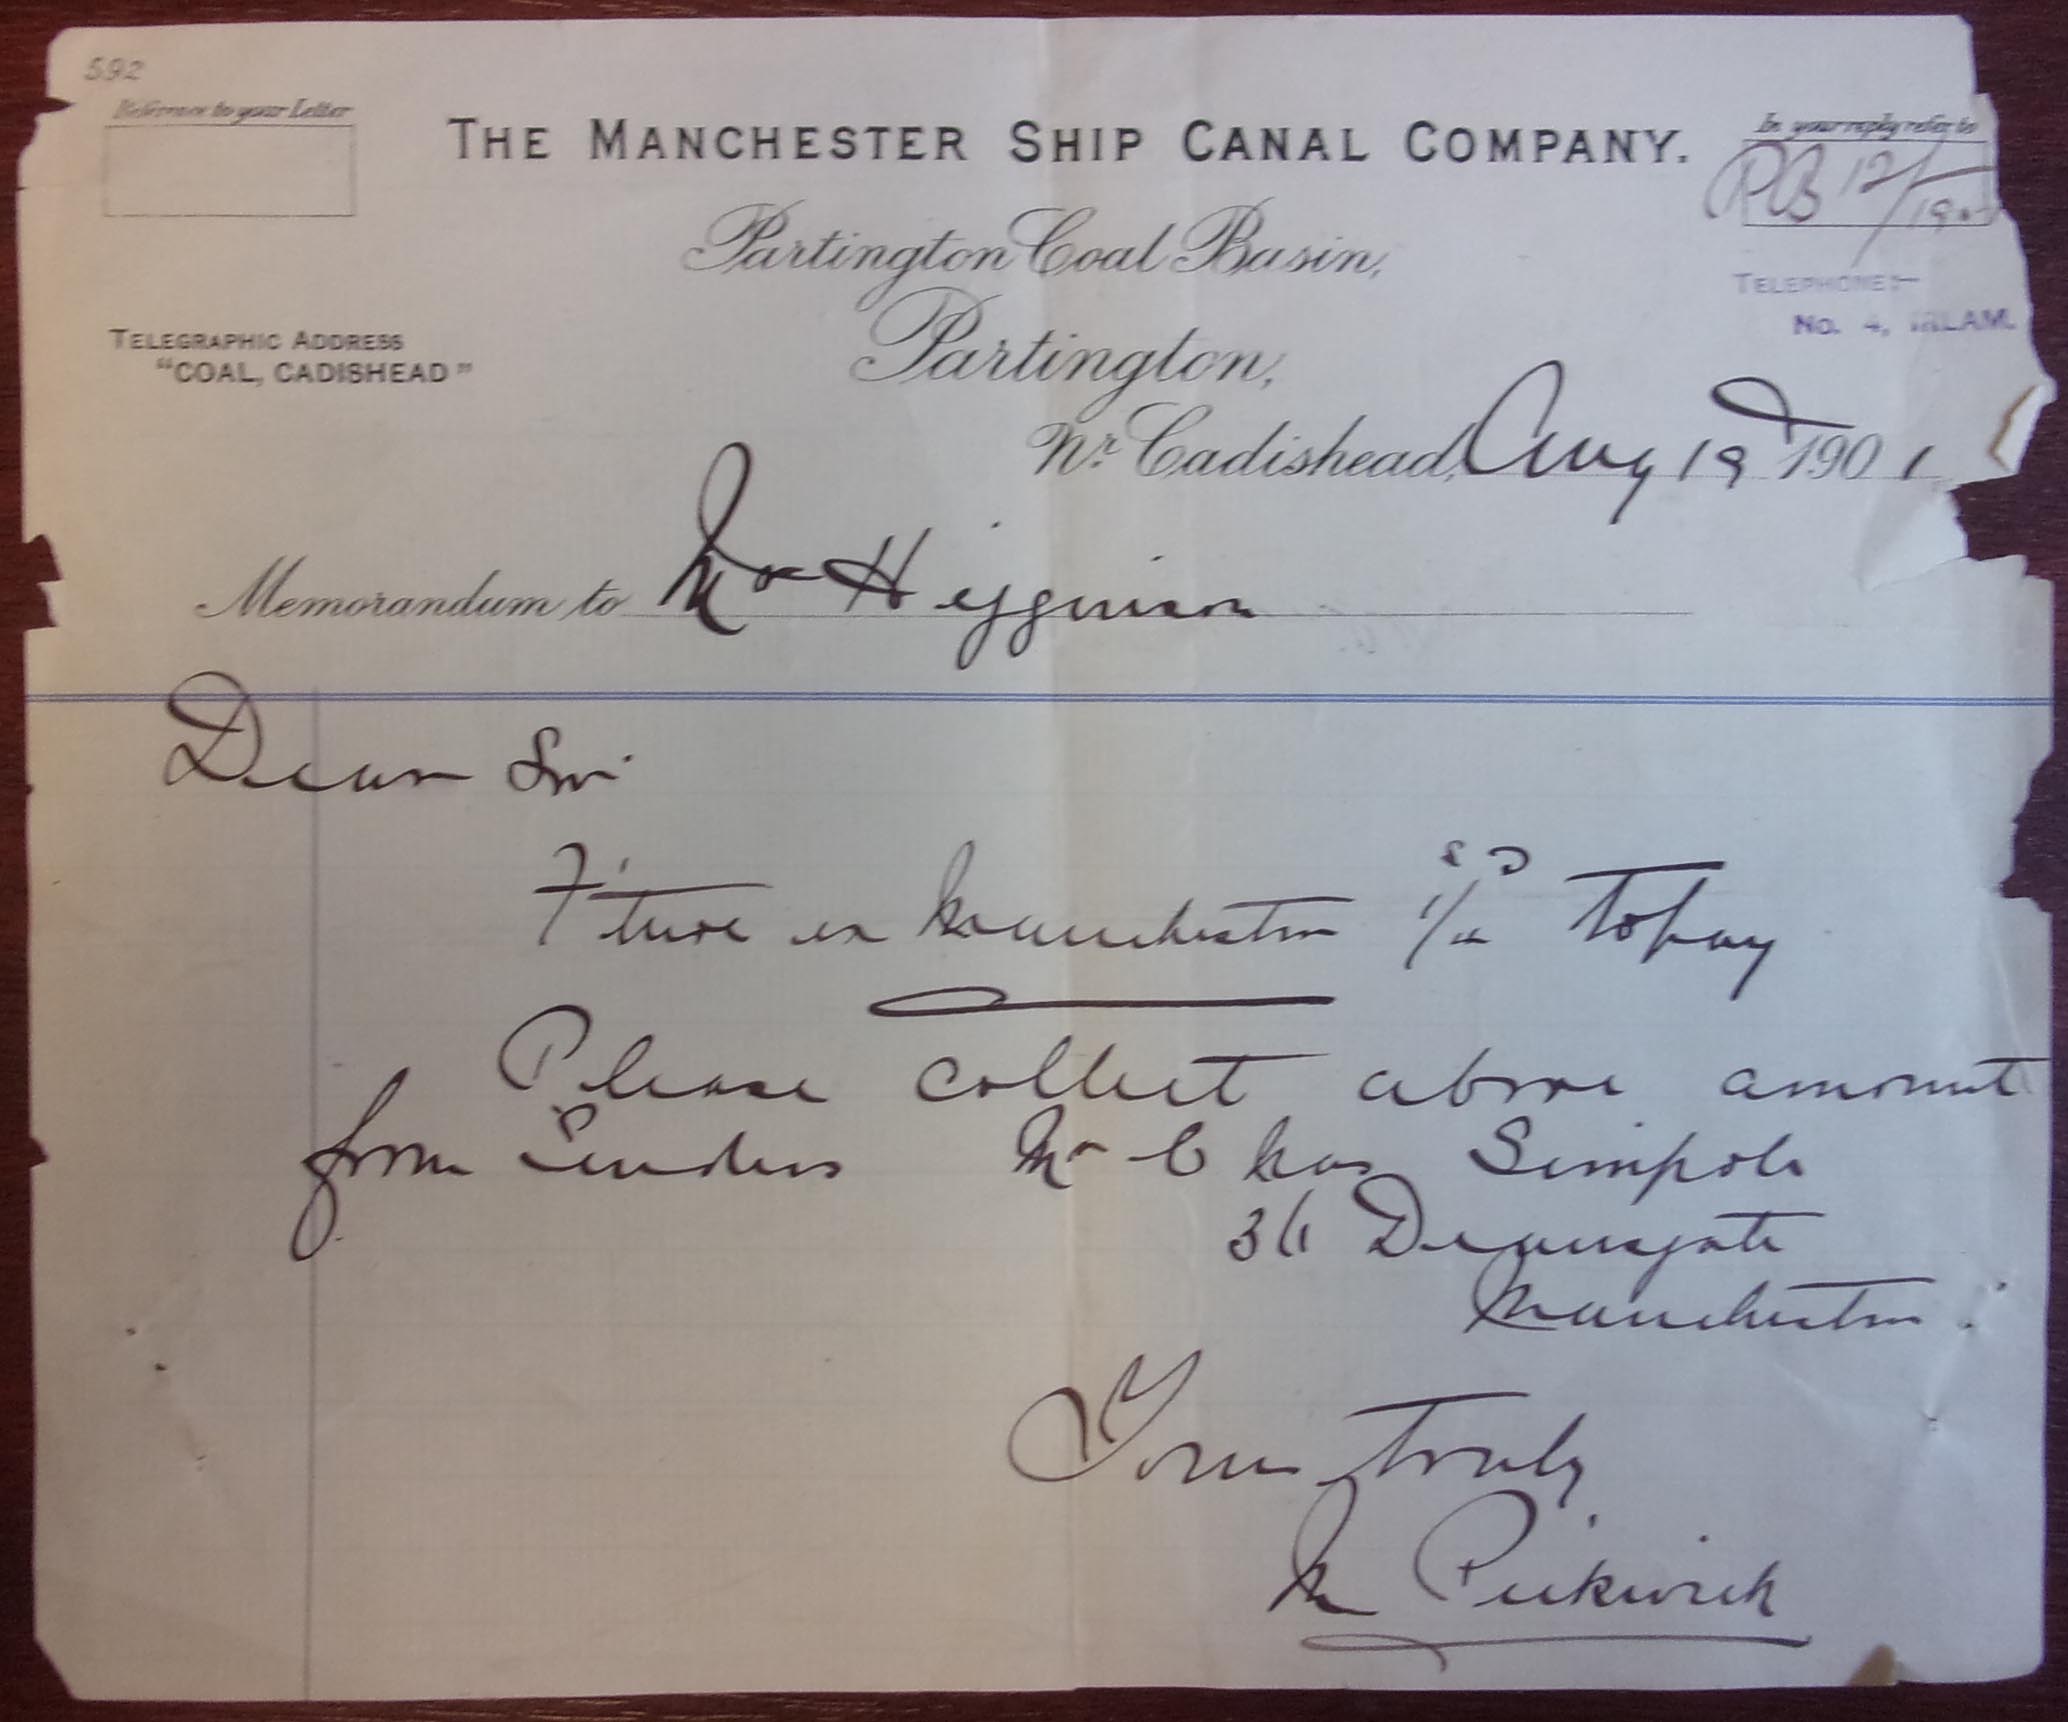 592
Reference to your Letter
THE MANCHESTER SHIP CANAL COMPANY.
In your reply refer to
PB 12/
Partington Coal Basin,
TELEPHONE:—
No. 4, IRLAM.
TELEGRAPHIC ADDRESS
"COAL, CADISHEAD"
Partington,
Nr. Cadishead, Aug 19 1901
Memorandum to Mr Higginson
Dear Sir
F'ture ex Manchester to pay
Please collect above amount
from Senders Mr Chas Simpole
Deansgate
Manchester.
Yours truly
Pickwick